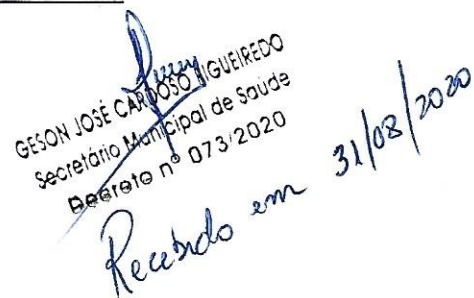 GESON JOSÉ CARDOSO FIGUEIREDO
Secretário Municipal de Saúde
Decreto nº 073/2020
Recebido em 31/08/2020